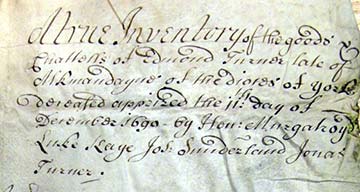 A true Inventory of the goods &
Chattells of Edmond Turner late of
of the dioces of york
deceased apprized the 11th day of
December 1690 by Hen: Murgatroyd
Luke Kaye Jos: Sunderland Jonas
Turner.